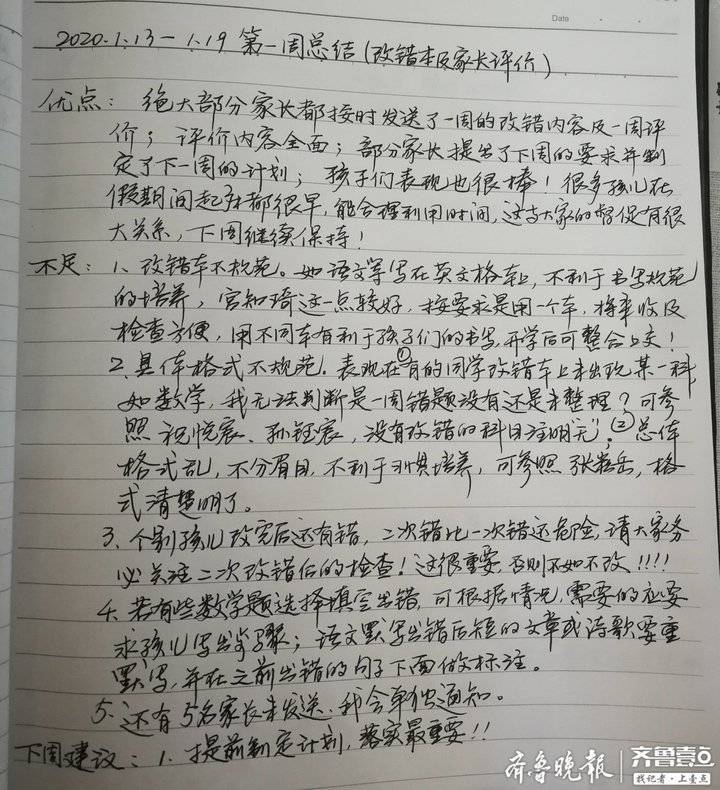 Date
2020.1.13-1.19 第一周总结(改错本及家长评价)
优点：绝大部分家长都按时发送了一周的改错内容及一周评
价；评价内容全面；部分家长提出了下周的要求并制
定了下一周的计划；孩子们表现也很棒！很多孩儿在
假期间起床都很早，能合理利用时间，这与大家的督促有很
大关系，下周继续保持！
不足：1、改错本不规范。如语文等写在英文格本上，不利于书写规范
的培养，官知琦这一点较好，按要求是用一个本，将来收及
检查方便，用不同本有利于孩子们的书写，开学后可整合上交！
2、具体格式不规范。表现在①有的同学改错本上未出现某一科，
如数学，我无法判断是一周错题没有还是未整理？可参
照祝悦宸、孙钰宸，没有改错的科目注明"无"；②总体
格式乱，不分眉目，不利于习惯培养，可参照张岳，格
式清楚明了。
3、个别孩儿改完后还有错，二次错比一次错还危险，请大家务
必关注二次改错后的检查！这很重要，否则不如不改！！！！
4、若有些数学题选择填空出错，可根据情况，需要的应要
求孩儿写出步骤；语文默写出错后短的文章或诗歌要重
默写，并在之前出错的句子下面做标注。
5、还有5名家长未发送，我会单独通知。
下周建议：1、提前制定计划，落实最重要！！
齐鲁晚报 齐鲁壹点
找记者·上壹点